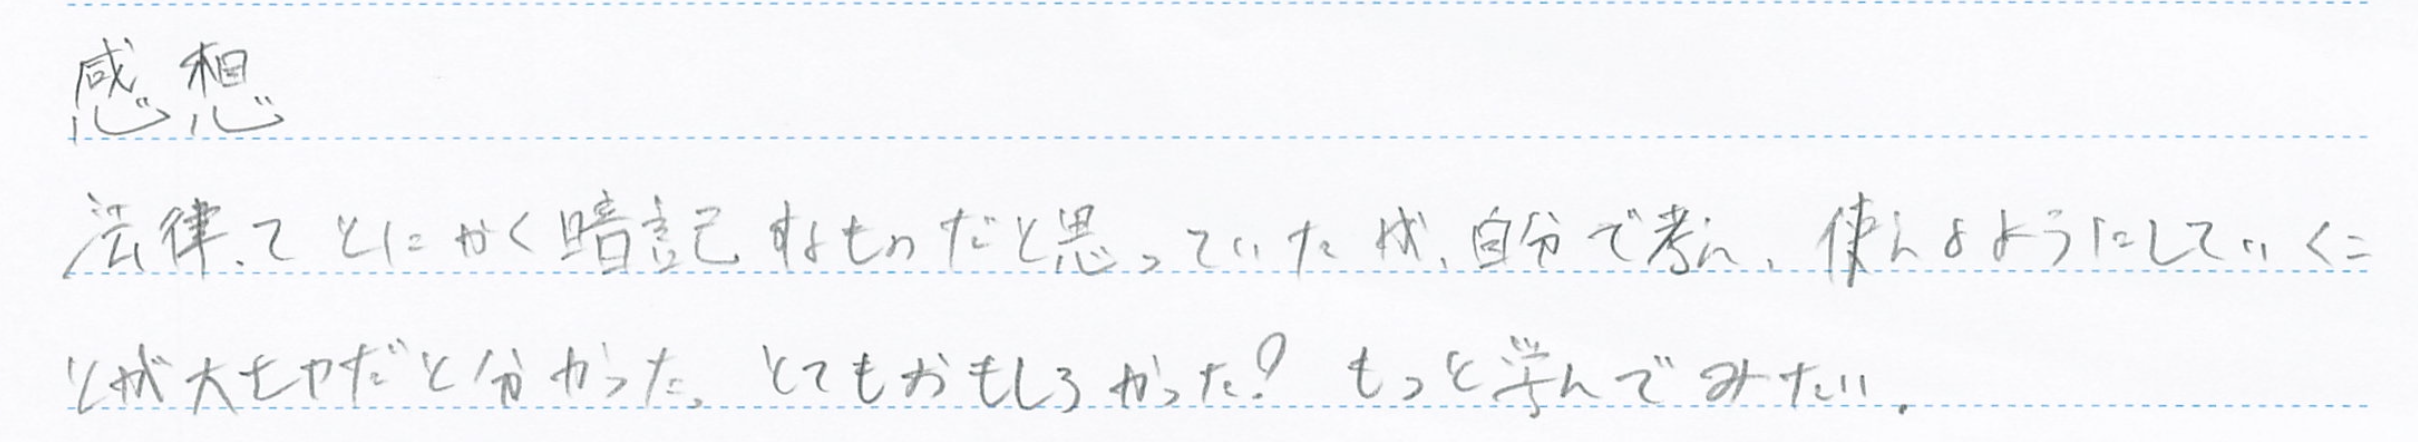 感想
法律ってとにかく暗記するものだと思っていたが、自分で考え、使えるようにしていくこ
とが大切だと分かった。とてもおもしろかった！もっと学んでみたい。